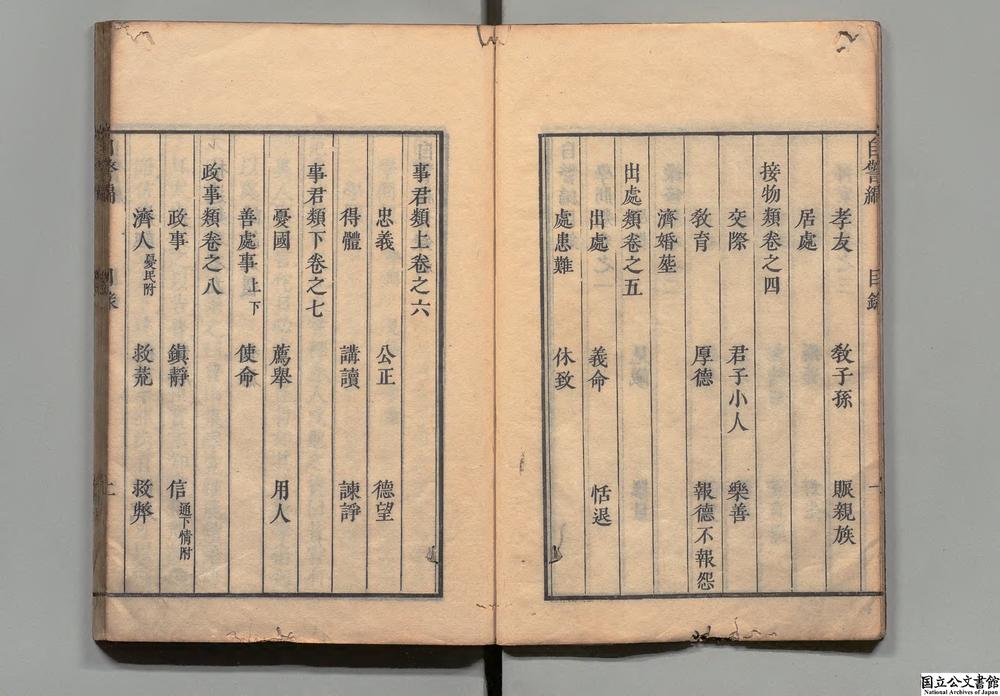 自警編 目錄 一
孝友 教子孫 賑親族
居處
接物類卷之四
交際 君子小人 樂善
教育 厚德 報德不報怨
濟婚塟
出處類卷之五
出處 義命 恬退
處患難 休致
事君類上卷之六
忠義 公正 德望
得體 講讀 諫諍
事君類下卷之七
憂國 薦舉 用人
善處事上下 使命
政事類卷之八
政事 鎮靜 信通下情附
濟人憂民附 救荒 救弊
国立公文書館
National Archives of Japan